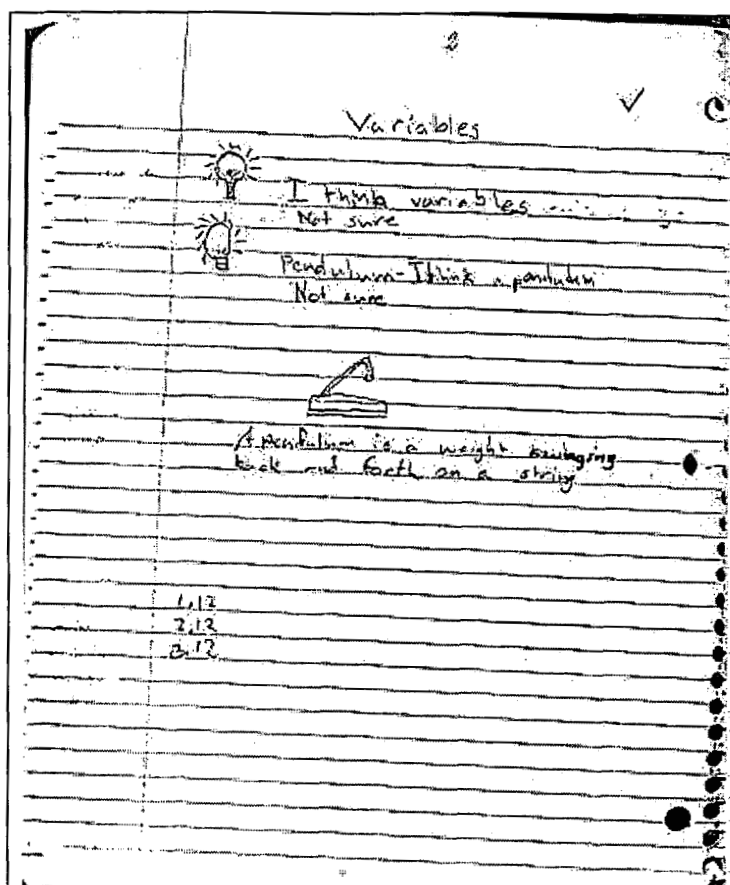 2
Variables
I think variables ........
Not sure
Pendulum - I think a pendulum
Not sure
A pendulum is a weight
back and forth on a string
1. 12
2. 12
3. 12